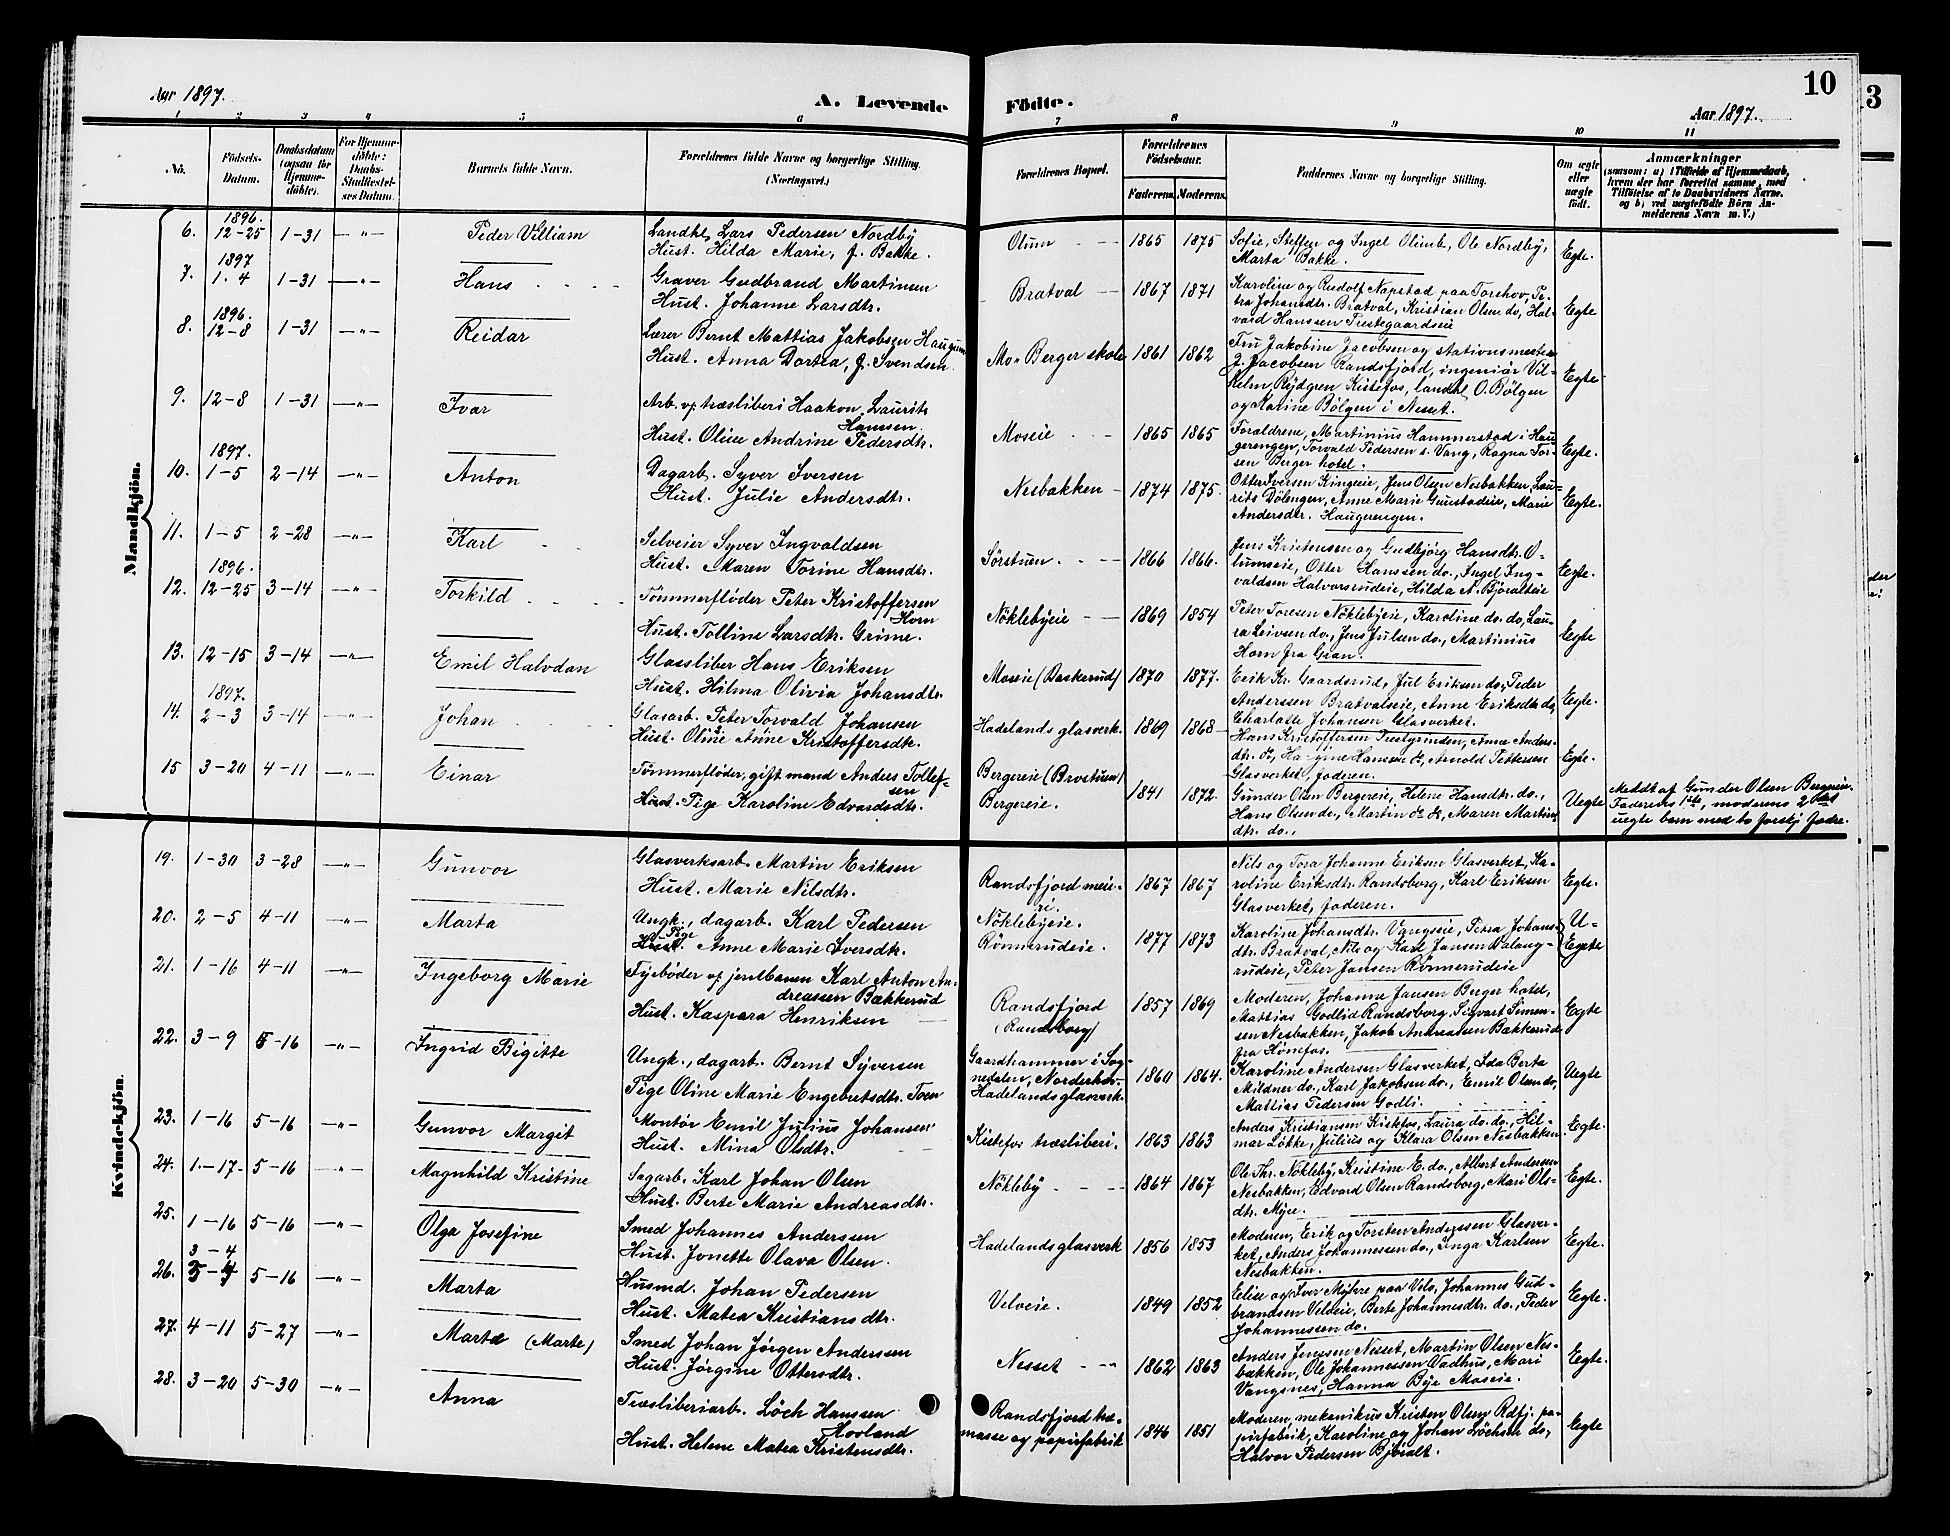 Aar 1897.
A. Levende Födte.
Aar 1897.
10
13
1 2 3 4 5 6 7 8 9 10 11
No.
Födsels-Datum.
Daabsdatum (ogsaa for Hjemme-döbte).
For Hjemme-döbte: Daabs-Stadfæstel-ses Datum.
Barnets fulde Navn.
Forældrenes fulde Navne og borgerlige Stilling.
(Næringsvei.)
Forældrenes Bopæl.
Forældrenes Födselsaar.
Faderens. Moderens.
Faddernes Navne og borgerlige Stilling.
Om ægte eller uægte födt.
Anmærkninger
(saasom: a) i Tilfælde af Hjemmedaab, hvem der har forrettet samme, med Tilföielse af to Daabsvidners Navne, og b) ved uægtefödte Börn Anmelderens Navn m. V.)
Mandkjön.
6. 1896. 12-25 1-31 -"- Peder Villiam
Landhl. Lars Pedersen Nordby
Hust. Hilda Marie, f. Bakke.
Olum 1865 1875
Sofie, Steffen og Ingel Olimb, Ole Nordby,
Marta Bakke.
Egte.
7. 1897 1.4 1-31 -"- Hans
Graver Gudbrand Martinsen
Hust. Johanne Larsdtr.
Bratval 1867 1871
Karoline og Rudolf Napstad paa Torshov, Pe-
tra Johansdtr. Bratval, Kristian Olsen do, Hal-
vard Hanssen Trestegaardseie
Egte
8. 1896. 12-8 1-31 -"- Reidar
Lærer Bernt Mattias Jakobsen Haugum
Hust. Anna Dortea, f. Svendsen.
Mo- Berger skole 1861 1862
Fru Jakobine Jacobsen og stationsmester
J. Jacobsen Randsfjord, ingeniør Vil-
helm Rydgren Kistefos, landhl. O. Bølgen
og Marine Bølgen i Nesset.
Egte
9. 12-8 1-31 -"- Ivar
Arb. v. træsliberi Haakon Laurits
Hanssen.
Hust. Oline Andrine Pedersdtr.
Moseie 1865 1865
Forældrene, Martinius Hammerstad i Hau-
gerengen, Torvald Pedersen s. Vang, Ragna Tor-
sen Berger hotel.
Egte.
10. 1897. 1-5 2-14 -"- Anton
Dagarb. Syver Iversen
Hust. Julie Andersdtr.
Nesbakken 1874 1875.
Otter Iversen Kingeeie, Jens Olsen Nesbakken, Lau-
rits Dölengen, Anne Marie Gunstadeie, Marie
Andersdtr. Haugerengen.
Egte.
11. 1-5 2-28 -"- Karl
Selveier Syver Ingvaldsen
Hust. Maren Torine Hansdtr.
Sørstuen. 1866 1866.
Jens Kristensen og Gudbjörg Hansdtr. O-
lumseie, Otter Hanssen do., Ingel Ing-
valdsen Halvorsrudeie, Hilda A. Björalteie
Egte.
12. 1896. 12-25 3-14 -"- Torkild
Tömmerflöder Peter Kristoffersen
Horn
Hust. Tolline Larsdtr. Grime.
Nöklebyeie 1869 1854
Peter Toresen Nöklebyeie, Karoline do. do, Lau-
ra Leivsen do., Jens Julsen do., Martinius
Horn fra Gran.
Egte
13. 12-15 3-14 -"- Emil Halvdan
Glassliber Hans Eriksen
Hust. Hilma Olivia Johansdtr.
Moseie (Baskerud) 1870 1877.
Erik Kr. Gaardsrud, Jul Eriksen do., Peder
Anderssen Bratvalseie, Anne Eriksdtr. do,
Charlotte Johansen Glasverket.
Egte.
14. 1897. 2-3 3-14 -"- Johan
Glasarb. Peter Torvald Johansen
Hust. Oline Anne Kristoffersdtr.
Hadelands glasverk. 1869 1868
Hans Kristoffersen Trestyrinden, Anne Anders-
dtr. do, Hansen do, Arnold Pettersen
Glasverket, faderen.
Egte.
15 3-20 4-11 -"- Einar
Tömmerflöder, gift mand Anders Tollef-
sen
Hust. Pige Karoline Edvardsdtr.
Bergereie (Brostuen)
Bergereie. 1841 1872.
Gunder Olsen Bergereie, Helene Hansdtr. do.,
Hans Olsen do., Martin do do, Maren Martins
dtr. do.,
Uegte
Meddt af Gunder Olsen Bergereie.
Faderens 1ste, moderens 2det
uegte barn med to forskj. fædre.
Kvindekjön.
19. 1-30 3-28 -"- Gunvor
Glasverksarb. Martin Eriksen
Hust. Marie Nilsdtr.
Randsfjord meie-
ri. 1867 1867
Nils og Tora Johanne Eriksen Glasverket, Ka-
roline Eriksdtr. Randsborg, Karl Eriksen
Glasverket, faderen.
Egte.
20. 2-5 4-11 -"- Marta
Ungk., dagarb. Karl Pedersen
Hust. Pige Anne Marie Iversdtr.
Nöklebyeie.
Rönnerudeie. 1877 1873
Karoline Johansdtr. Vangseie, Petra Johans-
dtr. Bratval, Nils og Karl Jansen Valang-
rudeie, Peter Jansen Rönnerudeie
U-
Egte
21. 1-16 4-11 -"- Ingeborg Marie
Fyrböder v. jernbanen Karl Anton An-
dreassen Bækkerud
Hust. Kaspara Henriksen
Randsfjord
(Randsborg) 1857 1869
Moderen, Johanne Jansen Berger hotel,
Mattias Godlid Randsborg, Sigvart Simen-
sen Nesbakken, Jakob Andreassen Bækkerud
fra Hönefos.
Egte
22. 3-9 5-16 -"- Ingrid Bigitte
Ungk., dagarb. Bernt Syversen
Pige Oline Marie Engebretsdtr. Toen
Gaardhammer i Sog-
nedalen, Norderhov.
Hadelands glasverk. 1860 1864.
Karoline Andersen Glasverket, Ida Berta
Mildner do., Karl Jakobsen do., Emil Olsen do,
Mattias Pedersen Godli.
Uegte
23. 1-16 5-16 -"- Gunvor Margit
Montör Emil Julius Johansen
Hust. Mina Olsdtr.
Kistefos træsliberi. 1863 1863
Anders Kristiansen Kistefos, Laura do. do., Hil-
mar Løkke, Julius og Klara Olsen Nesbakken.
Egte.
24. 1-17 5-16 -"- Magnhild Kristine
Sagarb. Karl Johan Olsen
Hust. Berte Marie Andreasdtr.
Nökleby 1864 1867
Ole Thr. Nökleby, Kristine E. do., Albert Andersen
Nesbakken, Edvard Olsen Randsborg, Mari Ols-
dtr. Myre.
Egte.
25. 1-16 5-16 -"- Olga Josefine
Smed Johannes Anderssen
Hust. Jonette Olava Olsen.
Hadelands glasverk 1856 1853
Moderen, Erik og Torsten Anderssen Glasver-
ket, Anders Johannessen do., Inga Karlsen
Nesbakken.
Egte.
26. 3-4 5-16 -"- Marta
Husmd. Johan Pedersen
Hust. Matea Kristiansdtr.
Velveie. 1849 1852
Elise og Iver Myhre paa Velo, Johannes Gud-
brandsen Velseie, Berte Johannesdtr. do., Peder
Johannessen do.
Egte.
27. 4-11 5-27 -"- Marta (Marte)
Smed Johan Jørgen Anderssen
Hust. Jørgine Ottersdtr.
Nesset 1862 1863
Anders Jenssen Nesset, Martin Olsen Nes-
bakken, Ole Johannessen Vadhus, Mari
Vangsnes, Hanna Bye Moseie.
Egte.
28. 3-20 5-30 -"- Anna
Træsliberiarb. Löch Hanssen
Hovland
Hust. Helene Matea Kristensdtr.
Randsfjord træ-
masse og papirfabrik 1846 1851
Moderen, mekanikus Kristen Olsen Rdfj. pa-
pirfabrik, Karoline og Johan Löchsen do,
Halvor Pedersen Björalt.
Egte